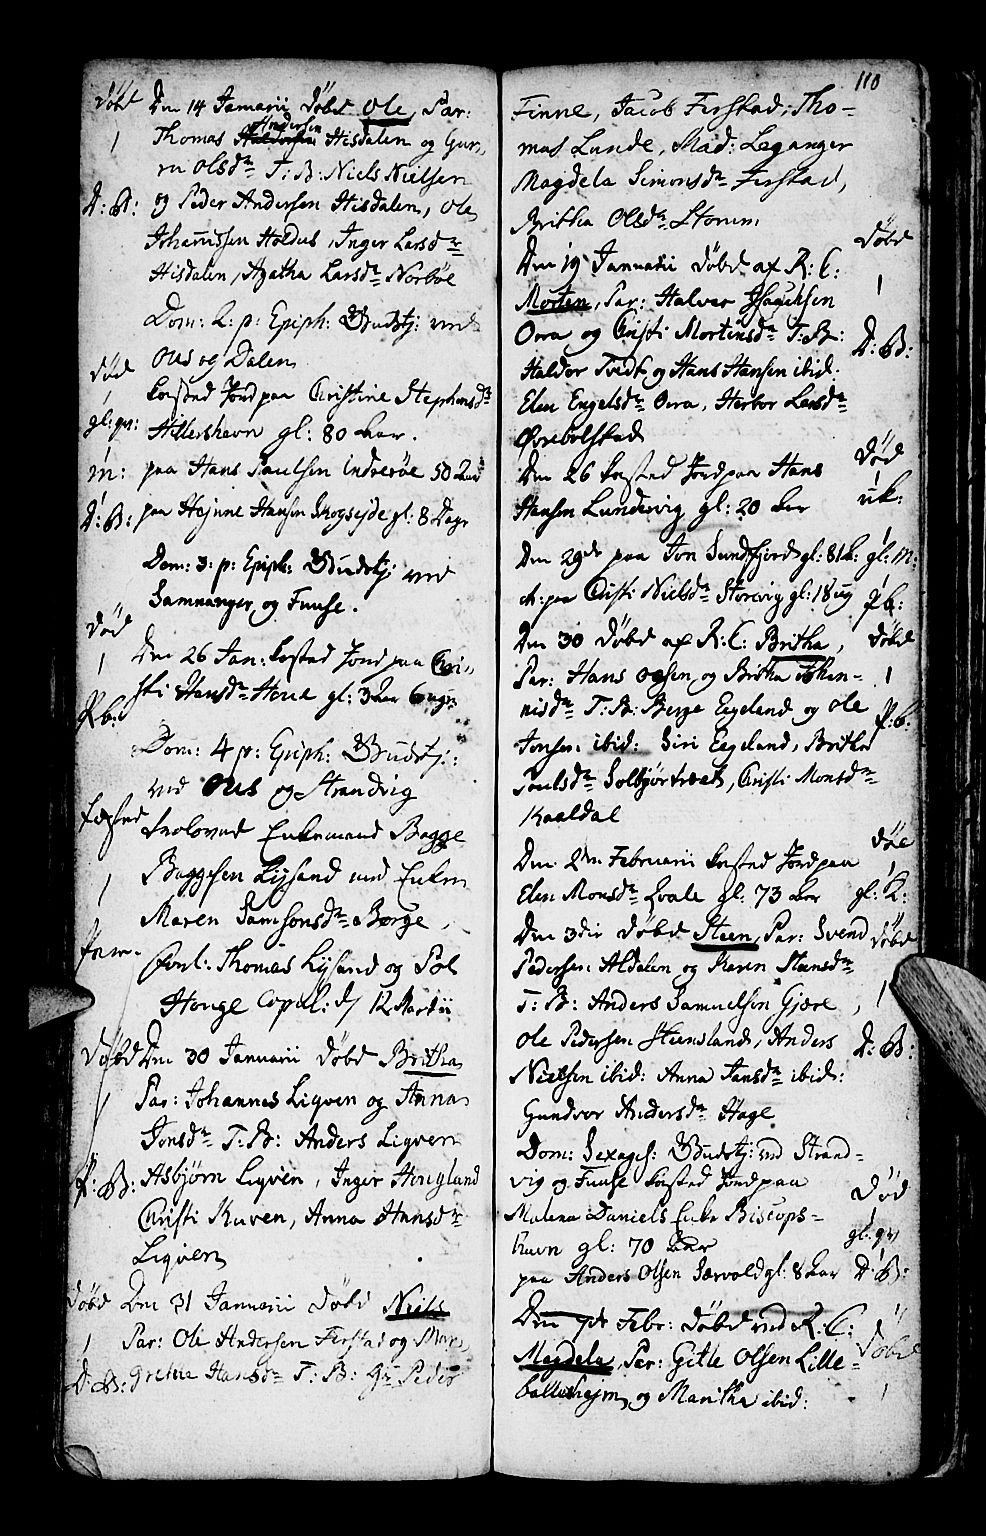 Døbt Den 14 Januarii Døbt Ole, Par:
1 Thomas Andersen Hisdalen og Gun,
ru Olsdr T: B: Niels Nielsen
D: B: og Peder Andersen Hisdalen, Ole
Johannissen Holdus, Inger Larsdr
Hisdalen, Agatha Larsdr Norbøe
Dom: 2. p: Epiph: Gudstj: ved
Ous og Dalen
død kasted Jord paa Christine Stephensdr
gl: qv: Hillershavn gl: 80 Aar.
m: paa Hans Paulsen Indverøe 50 Aar
D: B: paa Hejnne Hansen Skogsejde gl: 8 Dage
Dom: 3. p: Epiph: Gudstj: ved
Samnanger og Fuuse.
død
1 Den 26 Jan: kasted Jord paa Chri,
P: b: sti Hansdr Houe gl: 3 Aar 6 ug:
Dom: 4 p: Epiph: Gudstj:
ved Ous og Strandvig
fæsted trolovede Enkemand Bagge
1 Baggesen Lysand med Enken
Maren Samsonsdr Børge,
forl: Thomas Lysand og Pol
Houge Copul: d/ 12 Martii
Døbt Den 30 Januarii døbt Britha
1 Par: Johannes Liqven og Anna
Jonsdr T: B: Anders Liqven
P: B: Asbjørn Liqven, Inger Hougland
Christi Ruven, Anna Hansdr
Liqven
døbt Den 31 Januarii døbt Niels
1 Par: Ole Andersen Ferstad og Mar,
D: B: grethe Hansdr T: B: Hr Peder
110
Finne, Jacob Ferstad, Tho-
mas Lunde, Mad: Leganger
Magdela Simonsdr Ferstad,
Britha Olsdr Storum
døbt
Den 19 Januarii døbt af R: C:
1
Morten, Par: Halvor Hagensen
Ovra og Christi Mortensdr T: B: D: B:
Haldor Tvedt og Hans Hansen ibid.
Elen Engelsdr Ovra, Herbor Larsdr
Øvrebolstad
Den 26 kasted Jord paa Hans død
Hansen Lundervig gl: 20 Aar uk:
Den 29de paa Jon Sundfjord gl: 81 A: gl: m:
ch: paa Christi Nielsdr Storevig gl: 18 ug P: b:
Den 30 døbt af R: C: Britha, døbt
Par: Hans Olsen og Britha Johan- 1
nisdr T: B: Berge Eegeland og Ole P: b:
Jonsen ibid: Siri Eegeland, Britha
Poulsdr Solbjørtræet, Christi Monsdr
Kaaldal
Den 2den Februarii kasted Jord paa død
1
Elen Monsdr Hvale gl: 73 Aar gl: K:
Den 3die døbt Steen, Par: Svend døbt
Pedersen Aldalen og Karen Steensdr
T: B: Anders Samuelsen Gjære, 1
Ole Pedersen Heensland, Anders D: B:
Nielsen ibid: Anna Jansdr ibid:
Gundvor Andersdr Hage
Dom: Sexages: Gudstj: ved Strand-
vig og Fuuse kasted Jord paa død
Malena Daniels Enke Biscops- gl: qv
havn gl: 70 Aar
paa Anders Olsen Særvold gl: 8 Aar D: B:
Den 7de Febr: døbt ved R: C:
Magdela, Par: Gitle Olsen Lille- døbt
bollehejm og Maritha ibid: 1